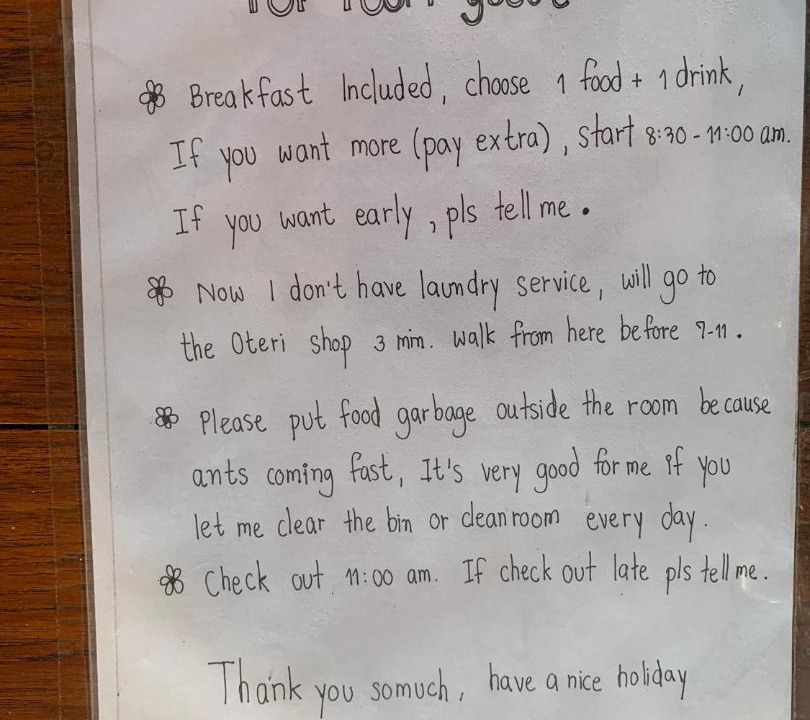 For room guest
❀ Breakfast Included, choose 1 food + 1 drink,
If you want more (pay extra), start 8:30 - 11:00 am.
If you want early, pls tell me.
❀ Now I don't have laundry service, will go to
the Oteri shop 3 min. walk from here before 7-11.
❀ Please put food garbage outside the room because
ants coming fast, It's very good for me if you
let me clear the bin or clean room every day.
❀ Check out 11:00 am. If check out late pls tell me.
Thank you somuch, have a nice holiday